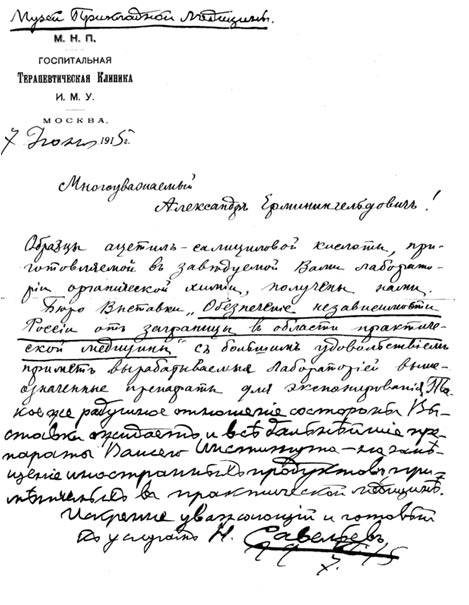 Музей Прикладной Медицины.
М. Н. П.
ГОСПИТАЛЬНАЯ
ТЕРАПЕВТИЧЕСКАЯ КЛИНИКА
И. М. У.
МОСКВА.
7 Июня 1915 г.
Многоуважаемый
Александръ Эрминингельдовичъ!
Образцы ацетилъ-салициловой кислоты, при-
готовляемой въ завѣдуемой Вами лаборато-
ріи органической химіи, получены нами.
Бюро Выставки „Обезпеченіе независимости
Россіи отъ заграницы въ области практиче-
ской медицины" съ большимъ удовольствіемъ
приметъ вырабатываемые лабораторіей выше-
означенные препараты для экспонированія. Та-
кое же радушное отношеніе со стороны Вы-
ставки ожидаетъ и всѣ дальнѣйшіе пре-
параты Вашего Института - на замѣ-
щеніе иностранныхъ продуктовъ, при-
мѣняемыхъ въ практической медицинѣ.
Искренне уважающій и готовый
къ услугамъ Н. Савельевъ